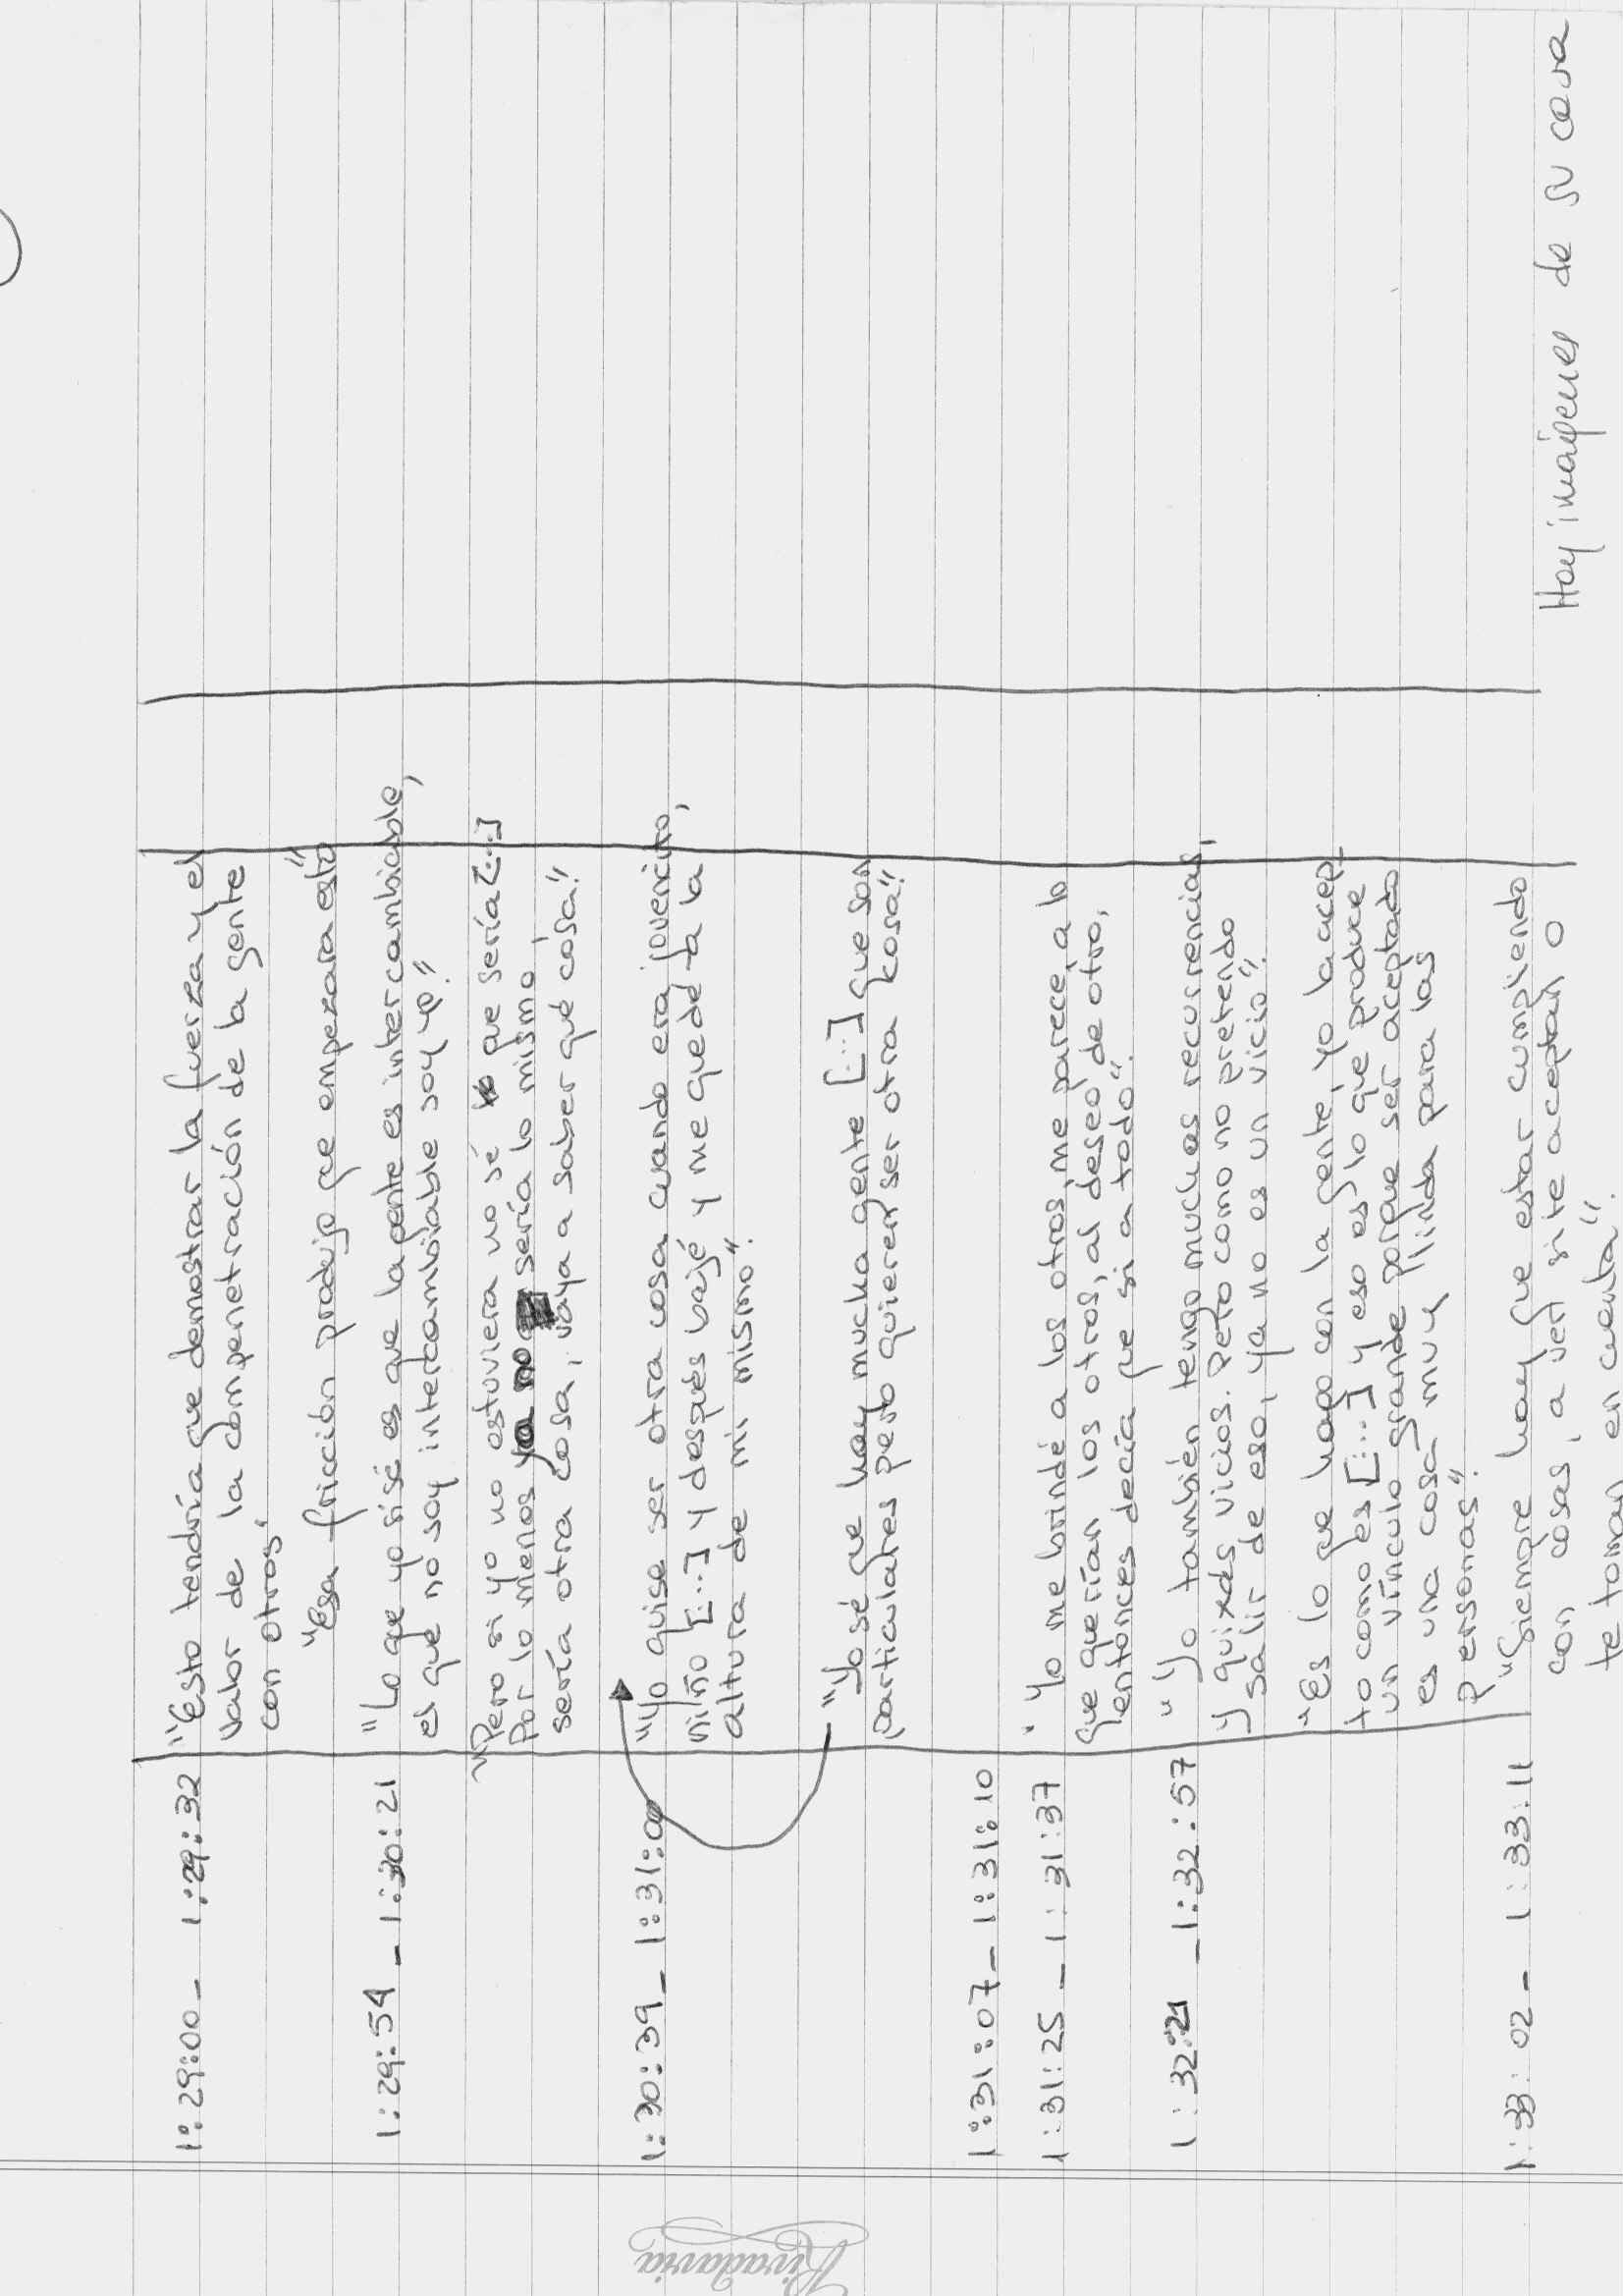 1:29:00 - 1:29:32 "Esto tendría que demostrar la fuerza y el
valor de la compenetración de la gente
con otros.
"Esa fricción produjo que empezara esto"
1:29:54 - 1:30:21 "Lo que yo sí sé es que la gente es intercambiable,
el que no soy intercambiable soy yo."
"Pero si yo no estuviera no sé que sería [...]
Por lo menos ya no sería lo mismo,
sería otra cosa, vaya a saber qué cosa."
1:30:39 - 1:31:00 "Yo quise ser otra cosa cuando era jovencito,
niño [...] y después bajé y me quedé a la
altura de mi mismo."
"Yo sé que hay mucha gente [...] que son
particulares pero quieren ser otra cosa."
1:31:07 - 1:31:10
1:31:25 - 1:31:37 "Yo me brindé a los otros, me parece, a lo
que querían los otros, al deseo de otro,
entonces decía que si a todo".
1:32:21 - 1:32:57 "Yo también tengo muchas recurrencias,
y quizás vicios. Pero como no pretendo
salir de eso, ya no es un vicio".
"Es lo que hago con la gente, yo la acep-
to como es [...] y eso es lo que produce
un vínculo grande porque ser aceptado
es una cosa muy linda para las
personas".
1:33:02 - 1:33:11 "Siempre hay que estar cumpliendo
con cosas, a ver si te aceptan o
te toman en cuenta".
Hay imágenes de su cara
Rivadavia